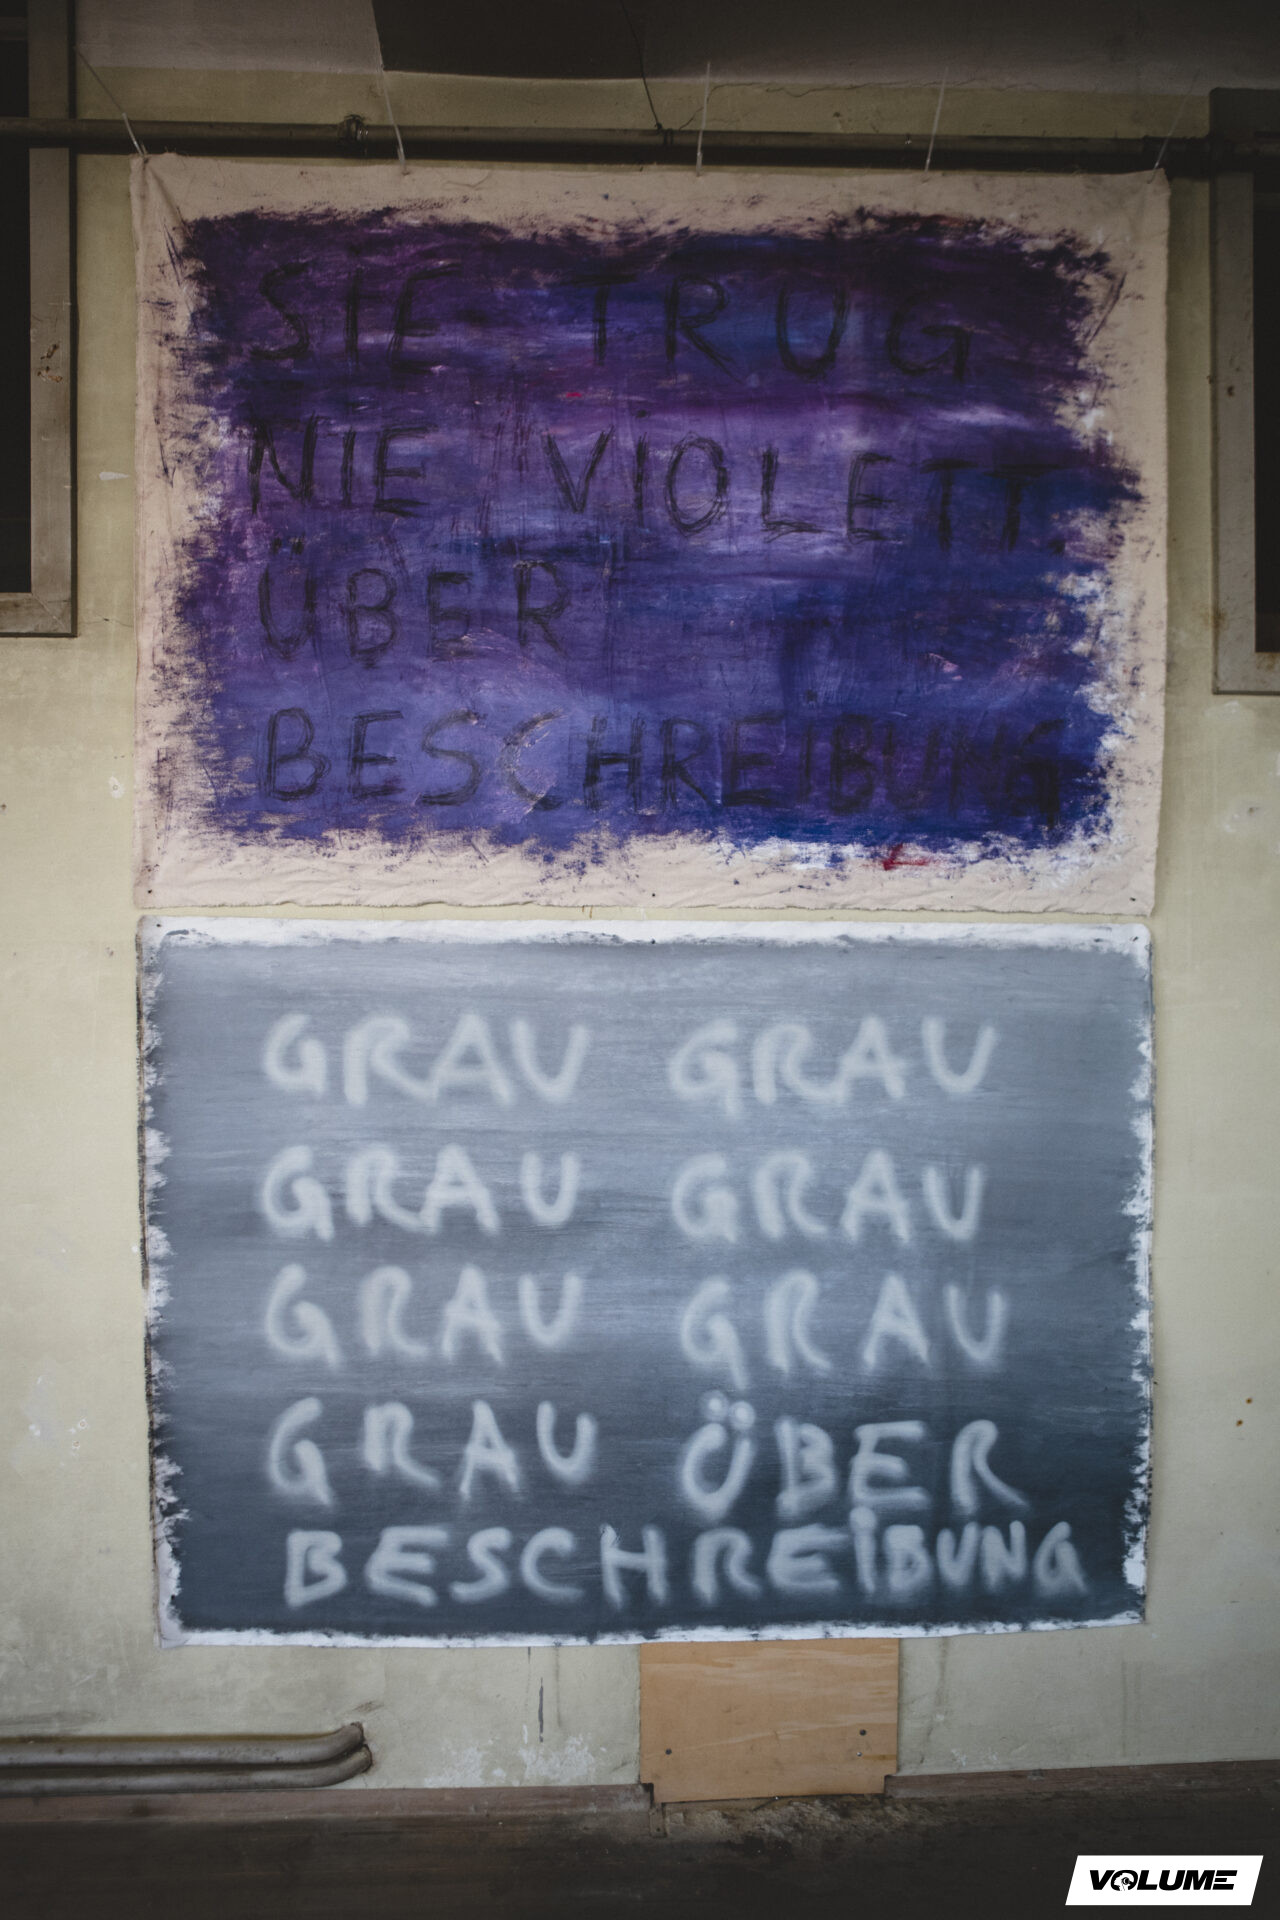 SIE TRUG
NIE VIOLETT.
ÜBER
BESCHREIBUNG
GRAU GRAU
GRAU GRAU
GRAU GRAU
GRAU ÜBER
BESCHREIBUNG
VOLUME